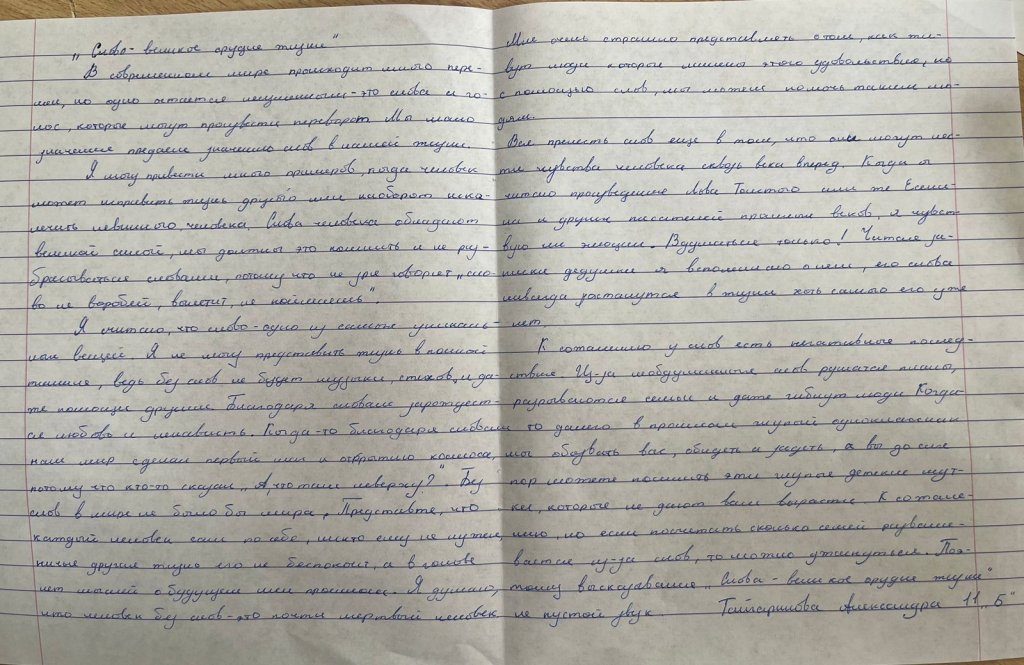 „Слово - великое орудие жизни"
В современном мире происходит много пере-
мен, но одно остается неизменным - это слова и го-
лос, которые могут произвести переворот. Мы мало
значение предаем значению слов в нашей жизни.
Я могу привести много примеров, когда человек
может исправить жизнь другого или наоборот иска-
лечить невинного человека. Слова человека обладают
великой силой, мы должны это помнить и не раз-
брасываться словами, потому что не зря говорят „сло-
во не воробей, вылетит, не поймаешь".
Я считаю, что слово - одно из самых уникаль-
ных вещей. Я не могу представить жизнь в полной
тишине, ведь без слов не будет музыки, стихов, и да-
же помощи другим. Благодаря словам зарождает-
ся любовь и ненависть. Когда-то благодаря словам
наш мир сделал первый шаг к открытию космоса,
потому что кто-то сказал „А, что там наверху?". Без
слов в мире не было бы мира. Представте, что
каждый человек сам по себе, никто ему не нужен,
ничье другие жизнь его не беспокоит, а в голове
нет мыслей о будущем или прошлом. Я думаю,
что человек без слов - это почти мертвый человек.
Мне очень страшно представлять о том, как жи-
вут люди которые лишены этого удовольствия, но
с помощью слов, мы можем помочь таким лю-
дям.
Вся прелесть слов еще в том, что они могут нес-
ти чувства человека сквозь века вперед. Когда я
читаю произведение Льва Толстого или же Есени-
на и других писателей прошлых веков, я чувст-
вую их эмоции. Вдуматься только! Читая за-
писки дедушки я вспоминаю о нем, его слова
навсегда останутся в жизни хоть самого его уже
нет.
К сожалению у слов есть негативные послед-
ствия. Из-за необдуманных слов рушатся планы,
разрываются семьи и даже гибнут люди. Когда-
то далеко в прошлом глупый одноклассник
мог обозвать вас, обидеть и задеть, а вы до сих
пор можете помнить эти глупые детские шут-
ки, которые не дают вам вырасти. К сожале-
нию, но если посчитать сколько семей развали-
вается из-за слов, то можно ужаснуться. Поэ-
тому высказывание „Слова - великое орудие жизни"
не пустой звук. Александра 11 „Б"